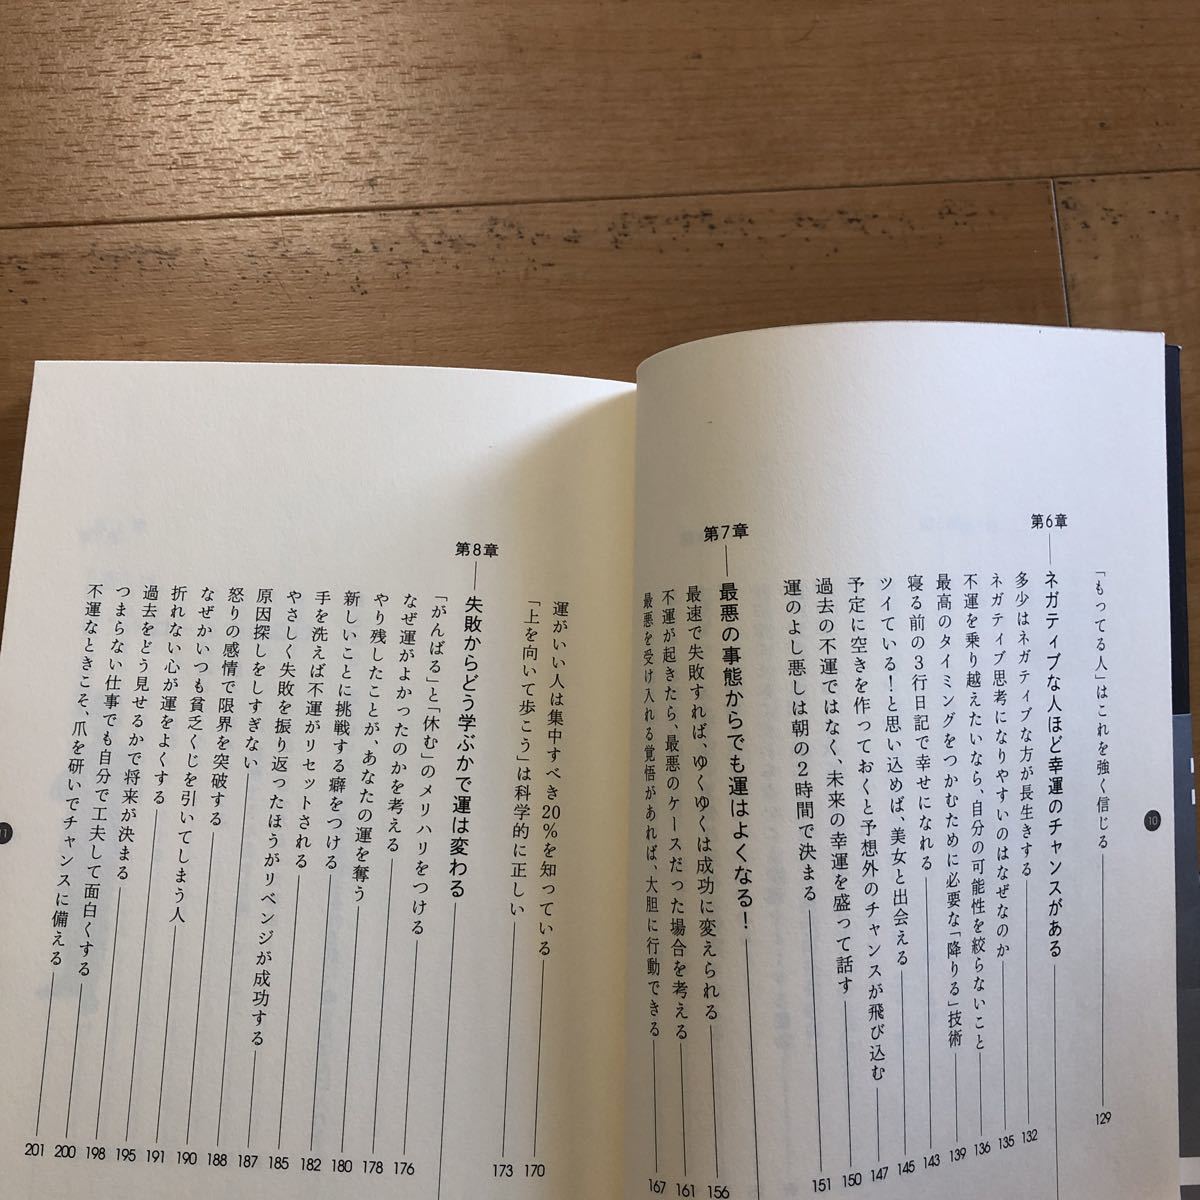 「もってる人」はこれを強く信じる 129
第6章 ネガティブな人ほど幸運のチャンスがある
多少はネガティブな方が長生きする 132
ネガティブ思考になりやすいのはなぜなのか 135
不運を乗り越えたいなら、自分の可能性を絞らないこと 136
最高のタイミングをつかむために必要な「降りる」技術 139
寝る前の3行日記で幸せになれる 143
ツイている!と思い込めば、美女と出会える 145
予定に空きを作っておくと予想外のチャンスが飛び込む 147
過去の不運ではなく、未来の幸運を盛って話す 150
運のよし悪しは朝の2時間で決まる 151
第7章 最悪の事態からでも運はよくなる!
最速で失敗すれば、ゆくゆくは成功に変えられる 156
不運が起きたら、最悪のケースだった場合を考える 161
最悪を受け入れる覚悟があれば、大胆に行動できる 167
10
運がいい人は集中すべき20%を知っている 170
「上を向いて歩こう」は科学的に正しい 173
第8章 失敗からどう学ぶかで運は変わる
「がんばる」と「休む」のメリハリをつける 176
なぜ運がよかったのかを考える 178
やり残したことが、あなたの運を奪う 180
新しいことに挑戦する癖をつける 182
手を洗えば不運がリセットされる 185
やさしく失敗を振り返ったほうがリベンジが成功する 187
原因探しをしすぎない 188
怒りの感情で限界を突破する 190
なぜかいつも貧乏くじを引いてしまう人 191
折れない心が運をよくする 195
過去をどう見せるかで将来が決まる 198
つまらない仕事でも自分で工夫して面白くする 200
不運なときこそ、爪を研いでチャンスに備える 201
11